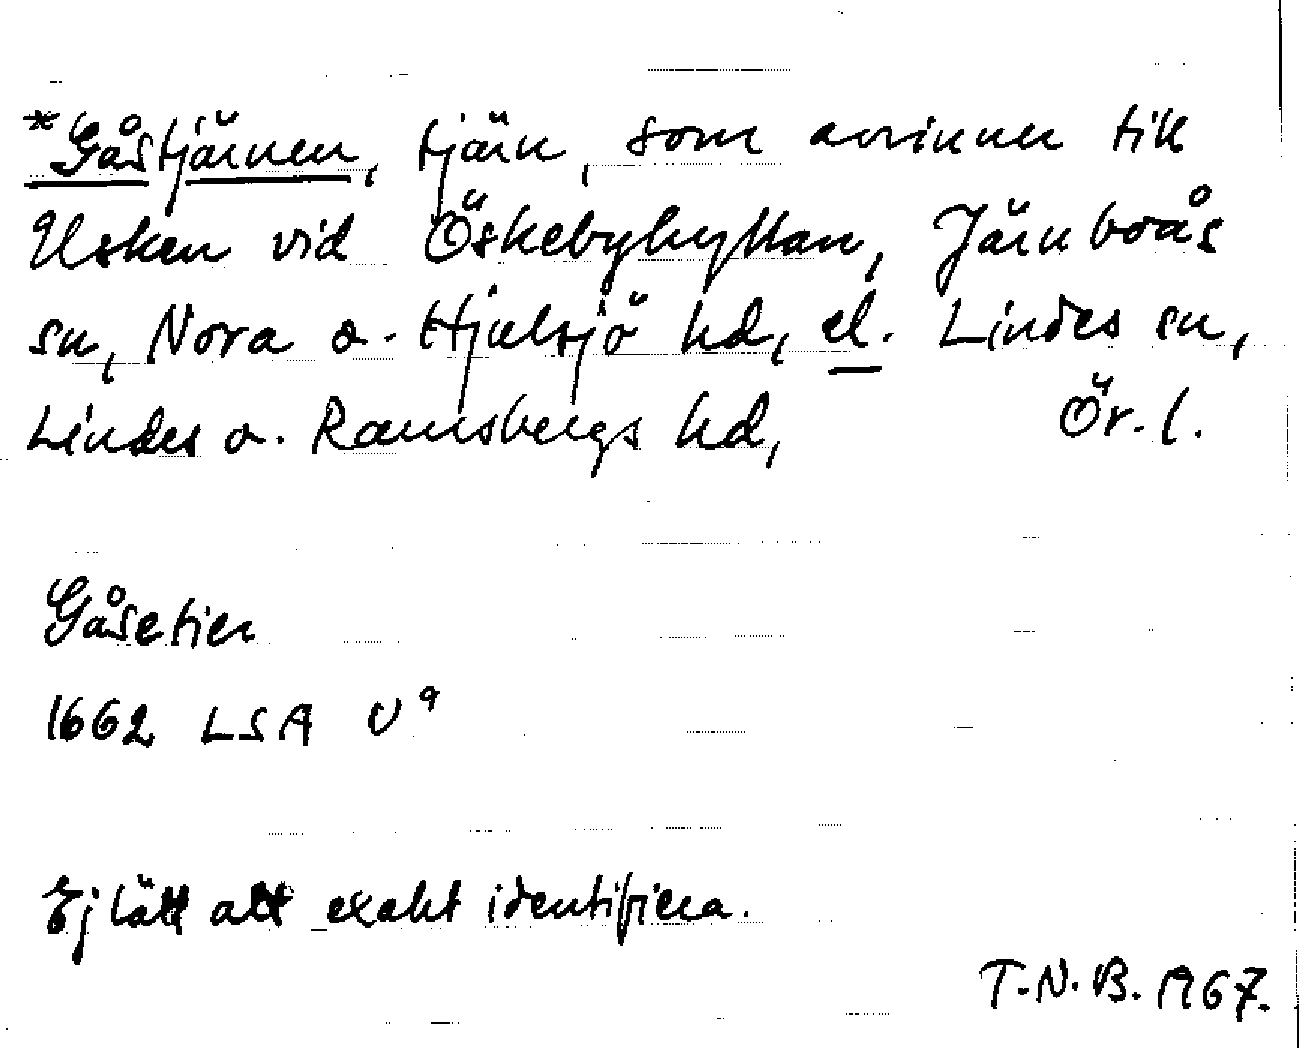 *Gåstjärnen, tjärn, som avrinner till
Usken vid Öskebyhyttan, Järnboås
sn, Nora o. Hjulsjö hd, el. Lindes sn,
Lindes o. Ramsbergs hd, Ör. l.
Gåsetier
1662 LSA U 9
Ej lätt att exakt identifiera.
T.N.B. 1967.